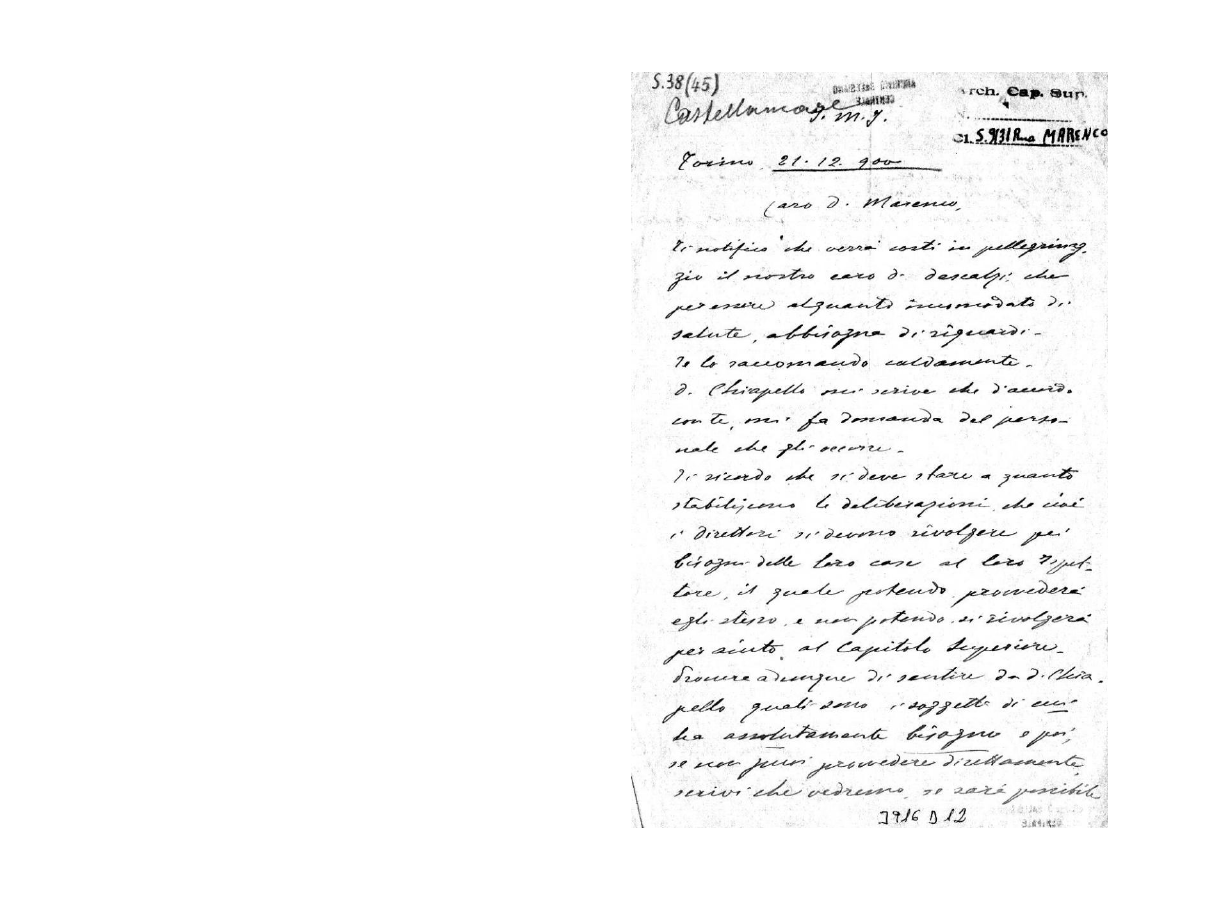 S.38(45)
Castellamare
ARCHIVIO SALESIANO
CENTRALE
J. M. J.
Arch. Cap. Sup.
N.
Cl. S.9131 Rua MARENCO
Torino 21. 12. 900
Caro D. Marenco,
Ti notifico che verrà costì in pellegrina-
zio il nostro caro D. Descalzi che
per essere alquanto incomodato di
salute, abbisogna di riguardi -
Te lo raccomando caldamente -
D. Chiapello mi scrive che d'accordo
con te, mi fa domanda del perso-
nale che gli occorre -
Ti ricordo che si deve stare a quanto
stabiliscono le deliberazioni, che cioè
i direttori si devono rivolgere pei
bisogni delle loro case al loro Ispet-
tore, il quale potendo, provvederà
egli stesso, e non potendo, si rivolgerà
per aiuto, al Capitolo Superiore -
Procura adunque di sentire da D. Chia-
pello quali sono i soggetti di cui
ha assolutamente bisogno e poi,
se non puoi provvedere direttamente,
scrivi che vedremo, se sarà possibile
3916 D 12